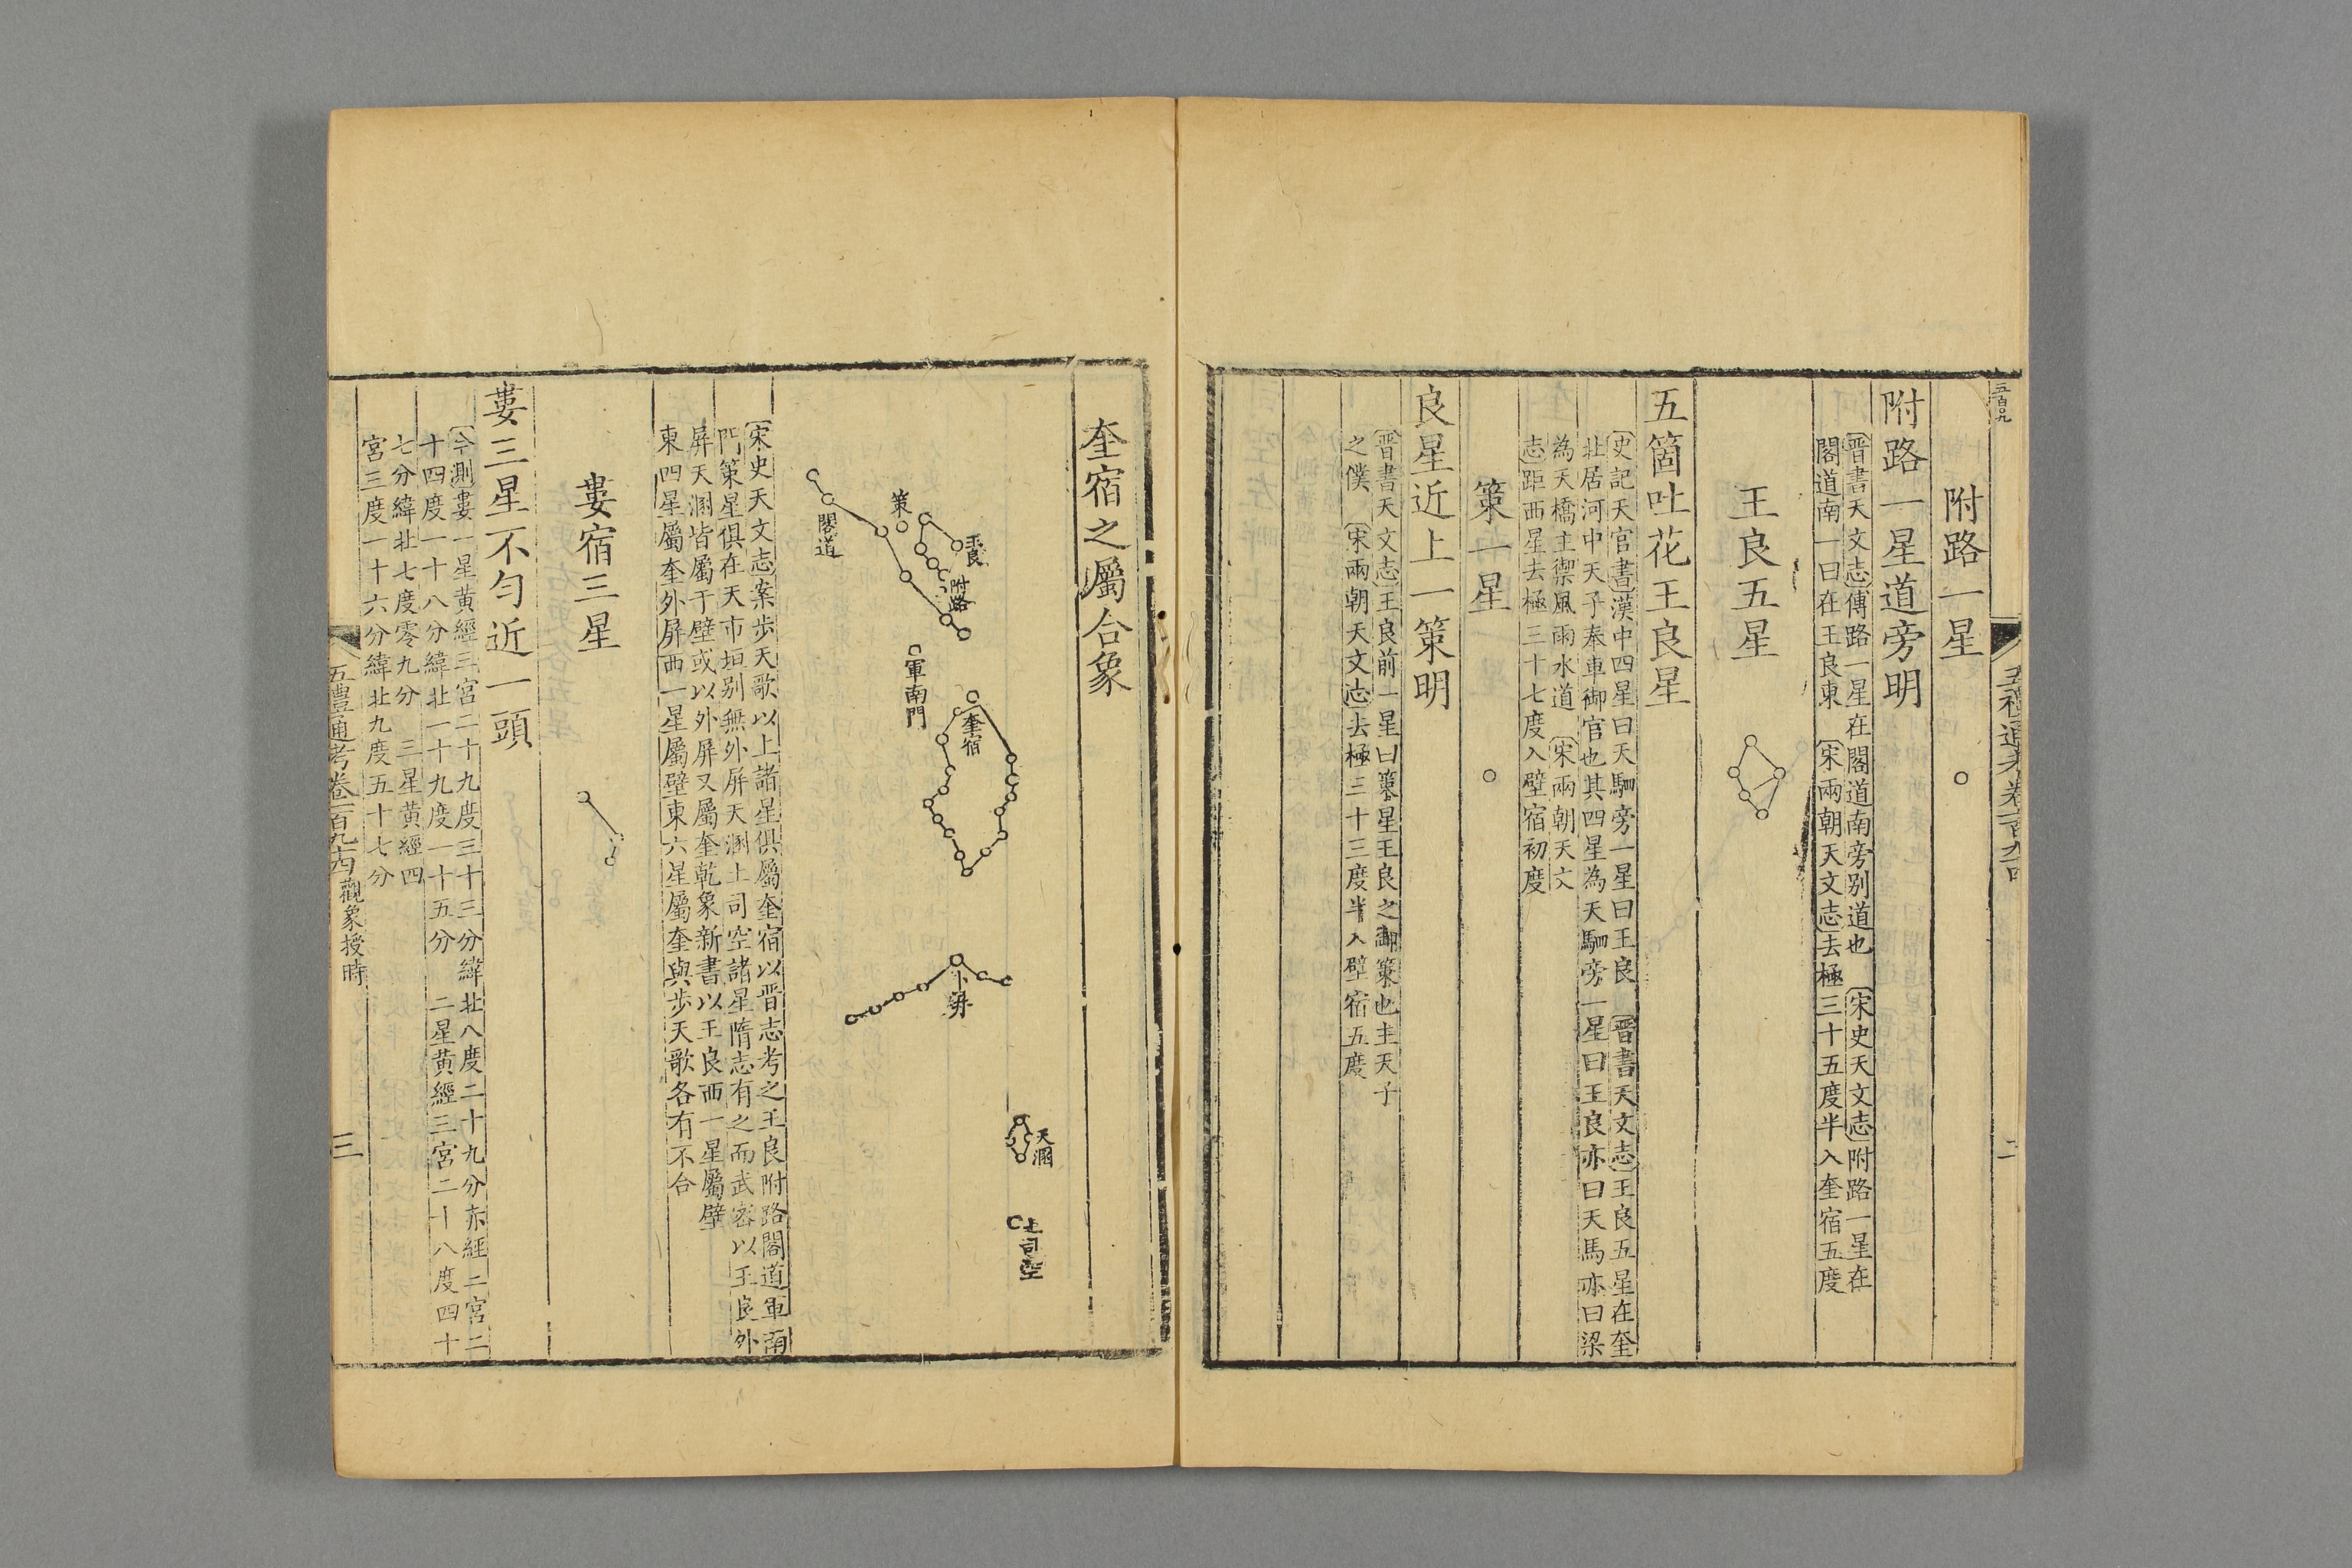 五百九
五禮通考卷一百九十四
二
附路一星
附路一星道旁明
〔晋書天文志〕傳路一星在閣道南旁别道也 〔宋史天文志〕附路一星在
閣道南一曰在王良東 〔宋兩朝天文志〕去極三十五度半入奎宿五度
王良五星
五箇吐花王良星
〔史記天官書〕漢中四星曰天駟旁一星曰王良 〔晋書天文志〕王良五星在奎
北居河中天子奉車御官也其四星為天駟旁一星曰王良亦曰天馬亦曰梁
為天橋主禦風雨水道 〔宋兩朝天文
志〕距西星去極三十七度入壁宿初度
策一星
良星近上一策明
〔晋書天文志〕王良前一星曰策星王良之御策也主天子
之僕 〔宋兩朝天文志〕去極三十三度半入壁宿五度
奎宿之屬合象
王良
附路
策
閣道
軍南門
奎宿
外屏
天溷
土司空
〔宋史天文志〕案步天歌以上諸星俱屬奎宿以晋志考之王良附路閣道軍南
門策星俱在天市垣别無外屏天溷土司空諸星隋志有之而武密以王良外
屏天溷皆屬于壁或以外屏又屬奎乾象新書以王良西一星屬壁
東四星屬奎外屏西一星屬壁東六星屬奎與步天歌各有不合
婁宿三星
婁三星不勻近一頭
〔今測〕婁一星黄經三宮二十九度三十三分緯北八度二十九分赤經二宮二
十四度一十八分緯北一十九度一十五分 二星黄經三宮二十八度四十
七分緯北七度零九分 三星黄經四
宮三度一十六分緯北九度五十七分
五豊通考卷一百九十四 觀象授時
三